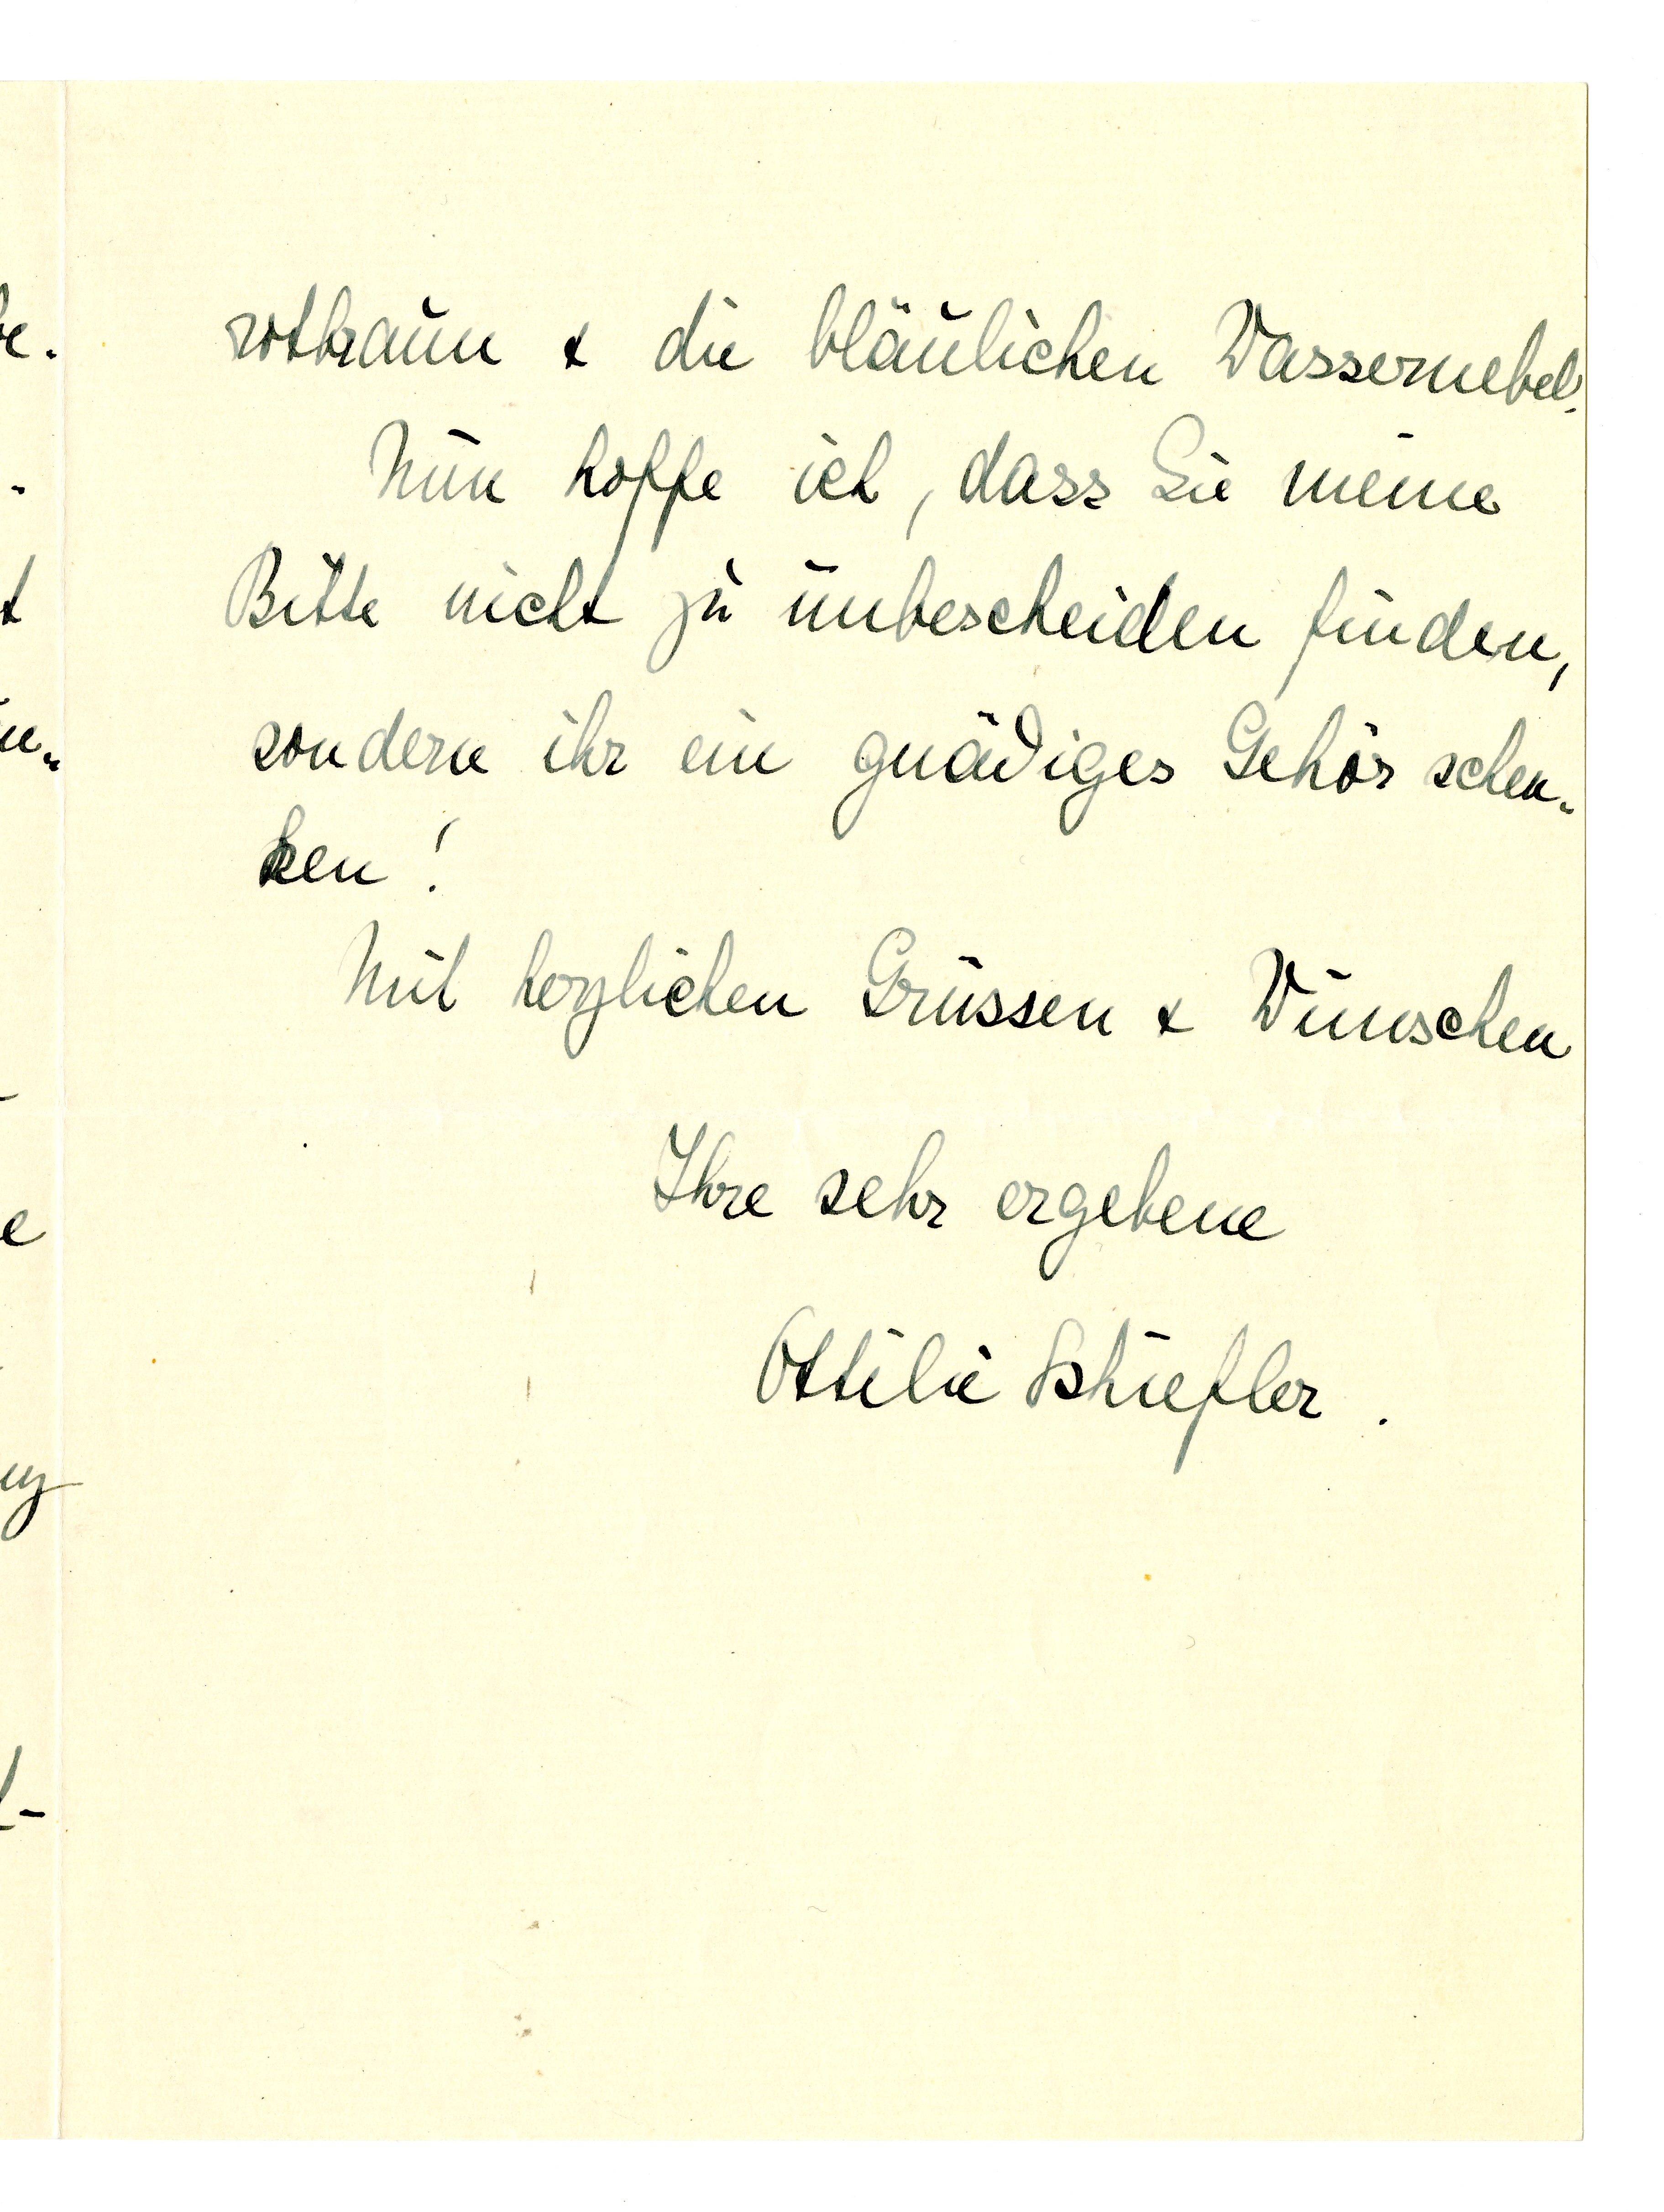 rotbraun & die bläulichen Wassernebel.
Nun hoffe ich, dass Sie meine
Bitte nicht zu unbescheiden finden,
sondern ihr ein gnädiges Gehör schen-
ken!
Mit herzlichen Grüssen & Wünschen
Ihre sehr ergebene
Ottilie Schiefler.